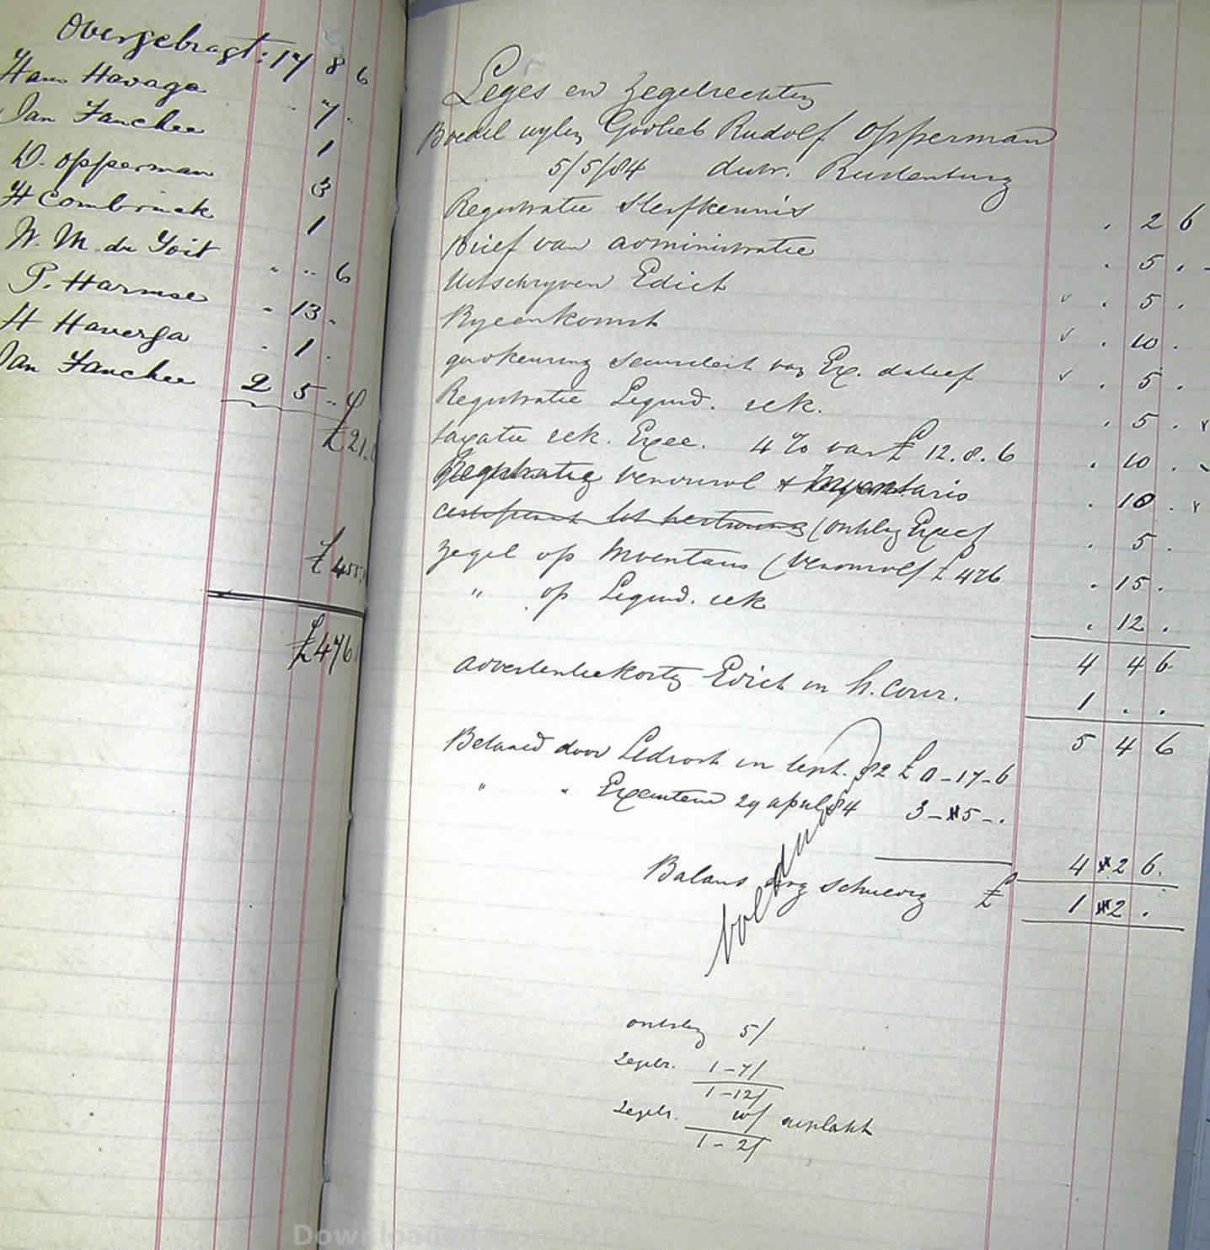 Overgebragt: 17 8 6
Hans Havaga " 7 "
Jan Fanchee 1
W. Opperman 3
H Combrinck 1
W. M. du Toit " " 6
P. Harmse " 13 "
H Haverga " 1 "
Jan Fanchee 2 5 "
£21.
£455
£476
Leges en Zegelrechten
Boedel wylen Gotlieb Rudolf Opperman
5/5/84 distr. Rustenburg
Registratie Sterfkennis . 2 6
Brief van administratie . 5 . -
Uitschryven Edict v . 5 .
Byeenkomst v . 10 .
goedkeuring securiteit van Ex. datief v . 5 .
Registratie Liquid. rek. . 5 . v
taxatie rek. Exec. 4 % van £ 12.8.6 . 10 .
Registratie vendurol & Inventaris . 10 . v
certificaat tot (ontslag Execs . 5 .
zegel op Inventaris (Vendurol £ 476 . 15 .
" op Liquid. rek . 12 .
4 4 6
advertentiekosten Edict in St. Cour. 1 . .
5 4 6
Betaald door in Sept. 82 £ 0-17-6
" " Executeur 29 april 84 3-5-.
4 2 6.
Balans nog schuldig £ 1 2 .
voldaan
ontslag 5/
Zegelr. 1-7/
1-12/
Zegelr. 10/ geplakt
1-2/